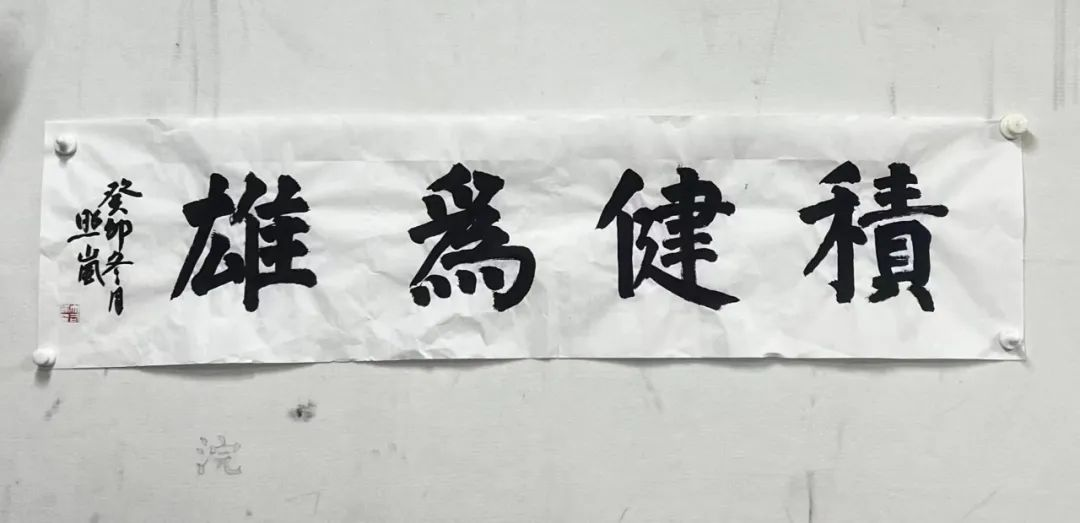 積健為雄
癸卯冬月
照嵐
浣